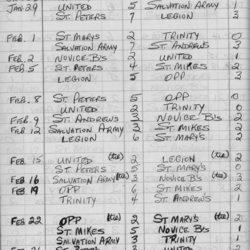 JAN. 29 UNITED 5 SALVATION ARMY 1
ST. PETERS 7 LEGION 3
FEB. 1 ST. MARYS 2 TRINITY 0
SALVATION ARMY 7 ST. ANDREWS 3
FEB. 2 NOVICE B's 2 UNITED 1
FEB. 5 ST. PETERS 4 ST. MIKES 2
LEGION 5 OPP 3
FEB. 8 ST. PETERS 5 OPP 0
UNITED 2 TRINITY 0
FEB. 9 ST. ANDREWS 3 NOVICE B's 2
FEB. 12 SALVATION ARMY 5 ST. MIKES 2
LEGION 6 ST. MARYS 2
FEB. 15 UNITED (tie) 2 LEGION 2
ST. PETERS 5 ST. MARY'S 0
FEB. 16 SALVATION ARMY (tie) 3 NOVICE B's (tie) 3
FEB. 19 OPP 6 ST. MIKES 2
TRINITY 4 ST. ANDREWS 1
FEB. 22 OPP (tie) 2 ST. MARY'S (tie) 2
ST. MIKES 5 NOVICE B's 1
SALVATION ARMY 3 TRINITY